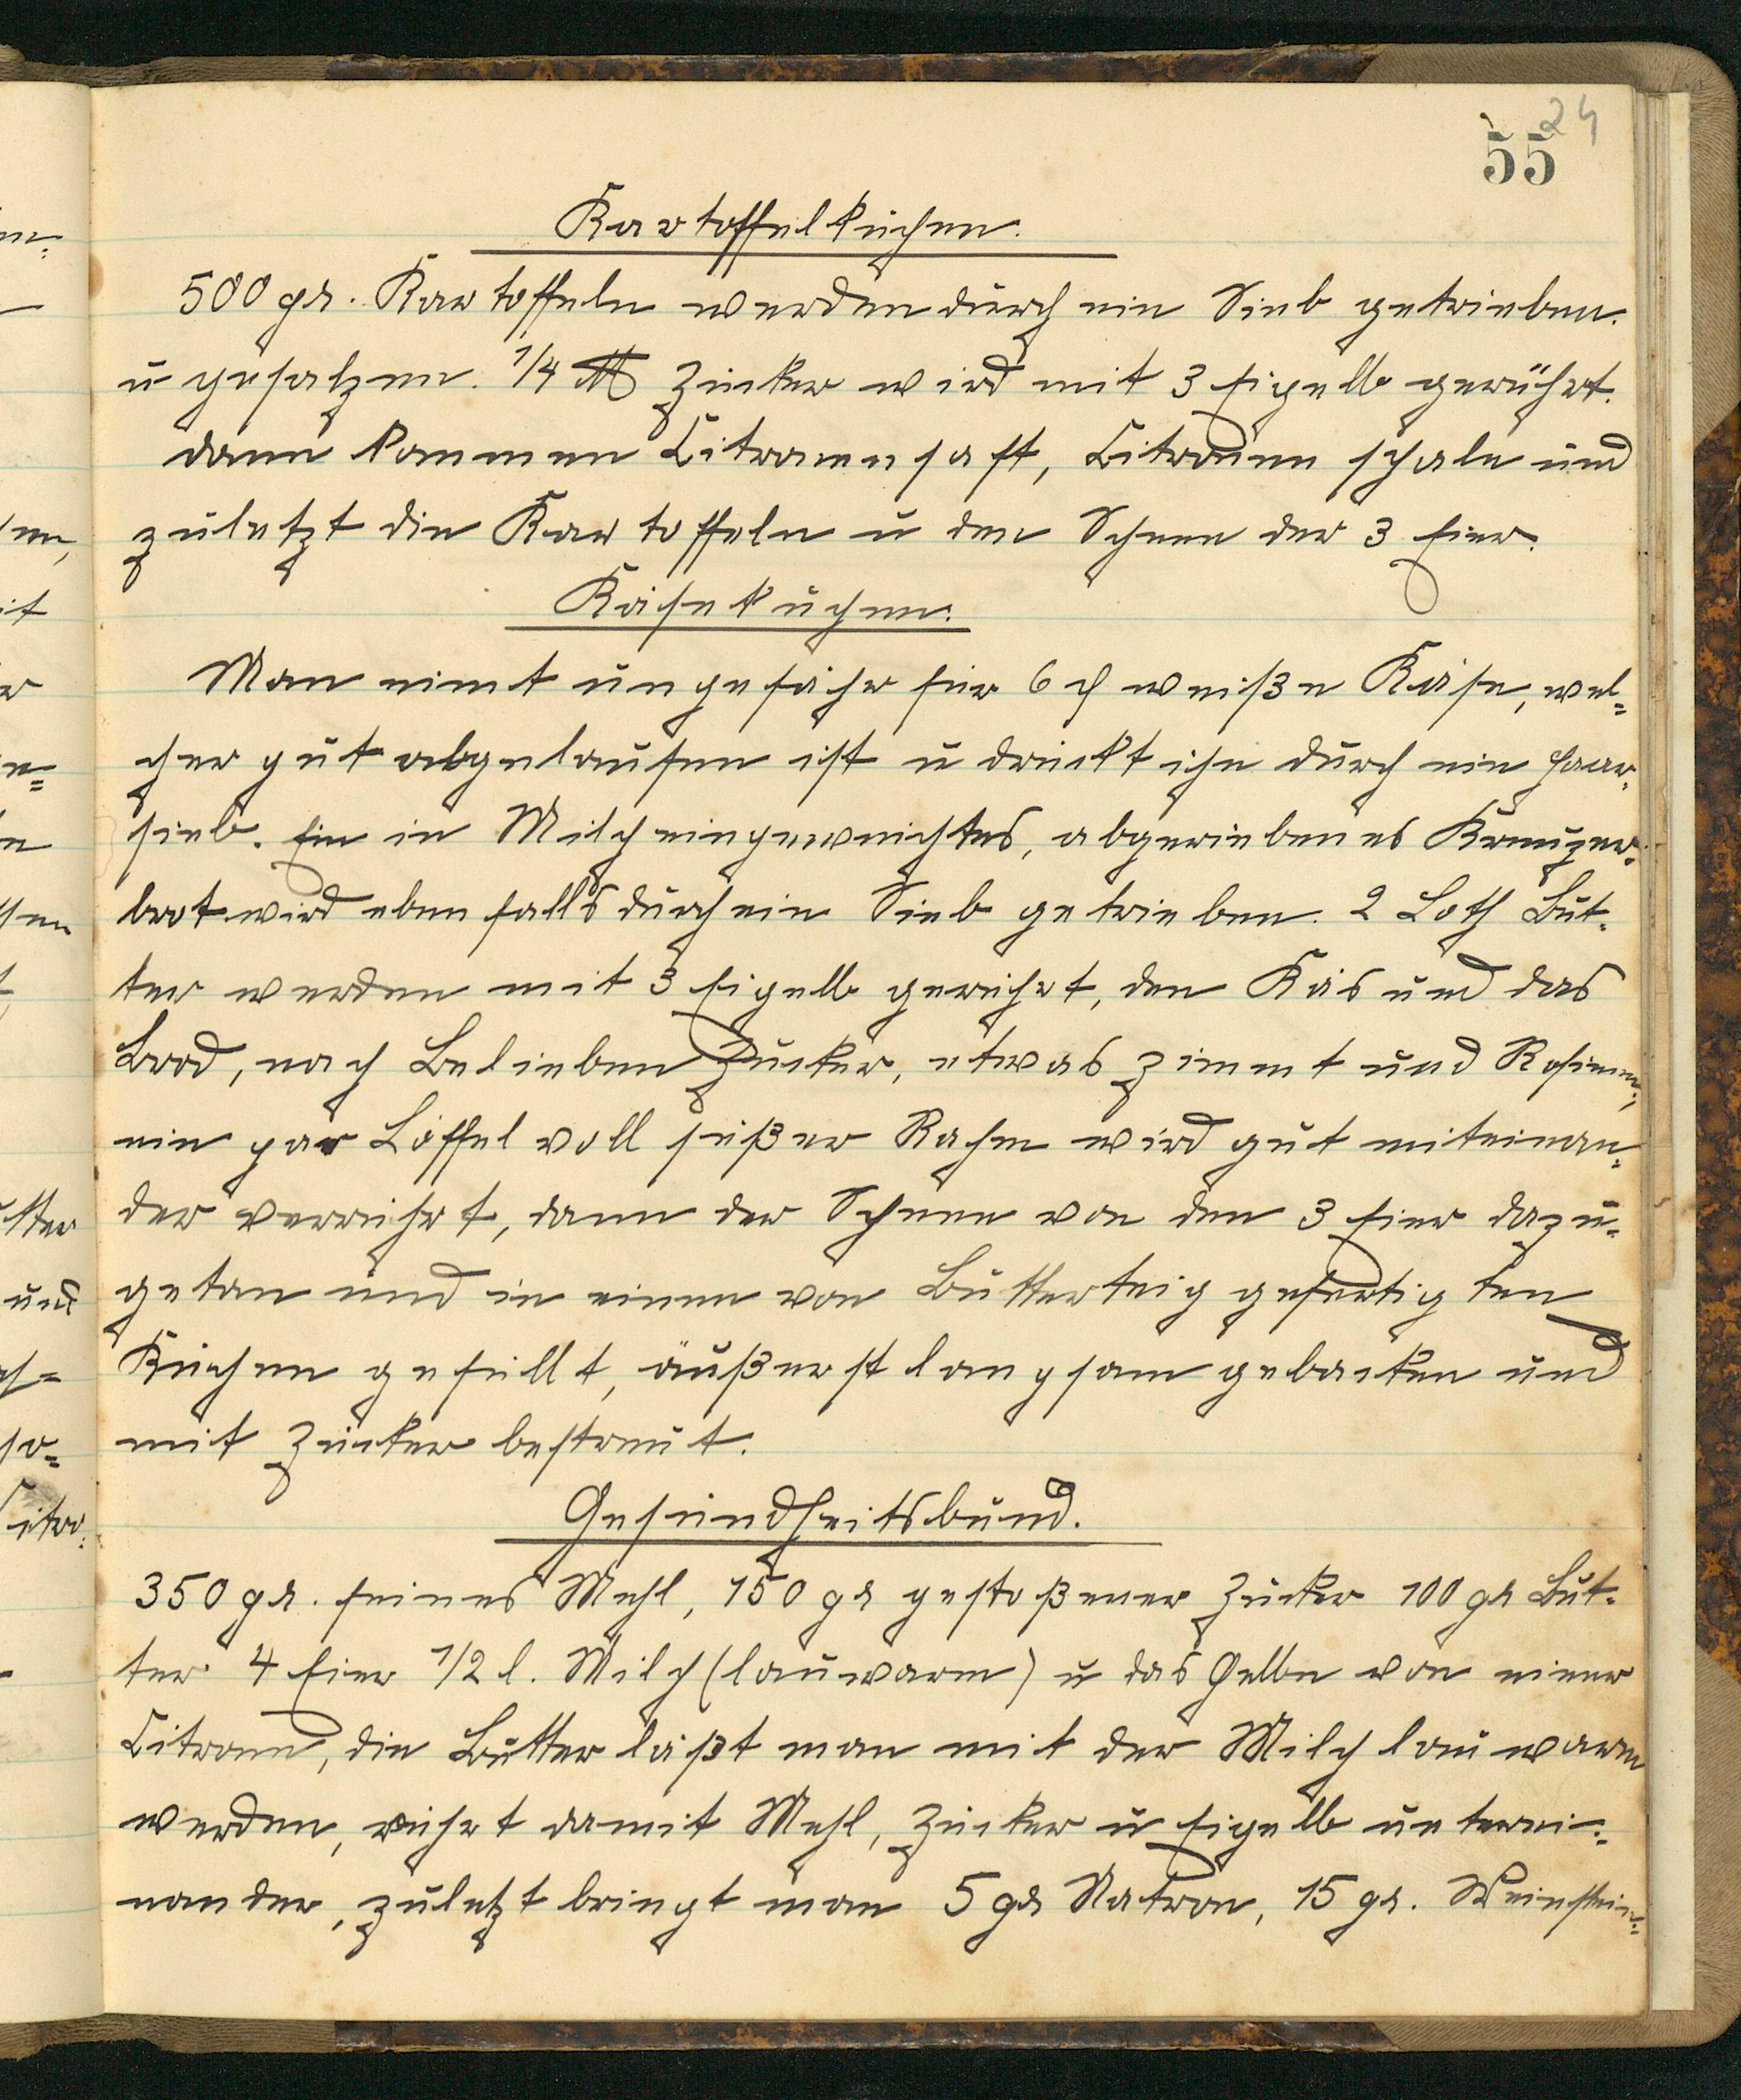 24
55
Kartoffelkuchen.
500 gr. Kartoffeln werden durch ein Sieb getrieben.
u gesalzen. 1/4 ℔ Zucker wird mit 3 Eigelb gerührt.
dann kommen Citronensaft, Citronen schale und
zuletzt die Kartoffeln u den Schnee der 3 Eier.
Käsekuchen.
Man nimt ungefähr für 6 ch weiße Käse, wel-
cher gut abgelaufen ist u drückt ihn durch ein Haar-
sieb. Ein in Milch eingeweichtes, abgeriebenes Kreuzer-
brot wird eben falls durch ein Sieb getrieben. 2 Loth But-
ter werden mit 3 Eigelb gerührt, den Käs und das
Brod, nach Belieben Zucker, etwas Zimmt und Rosinen,
ein par Löffel voll süßer Rahm wird gut miteinan-
der verrührt, dann der Schnee von den 3 Eier dazu-
getan und in einen von Butterteig gefertigten
Kuchen gefüllt, äußerst langsam gebacken und
mit Zucker bestreut.
Gesundheitsbund.
350 gr. feines Mehl, 150 gr gestoßener Zucker 100 gr But-
ter 4 Eier 1/2 l. Milch (lauwarm) u das Gelbe von einer
Citrone, die Butter läßt man mit der Milch lauwarm
werden, rührt damit Mehl, Zucker u Eigelb unterei-
nander, zuletzt bringt man 5 gr Natron, 15 gr. Weinstein-